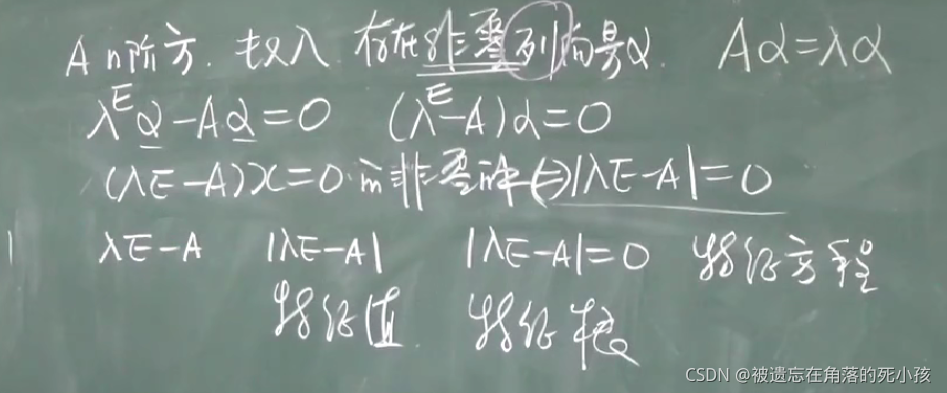 A n阶方. 数λ 存在非零列向量α. Aα=λα
λEα-Aα=0 (λE-A)α=0
(λE-A)x=0 有非零解⇔|λE-A|=0
λE-A |λE-A| |λE-A|=0 特征方程
特征值 特征根
CSDN @被遗忘在角落的死小孩